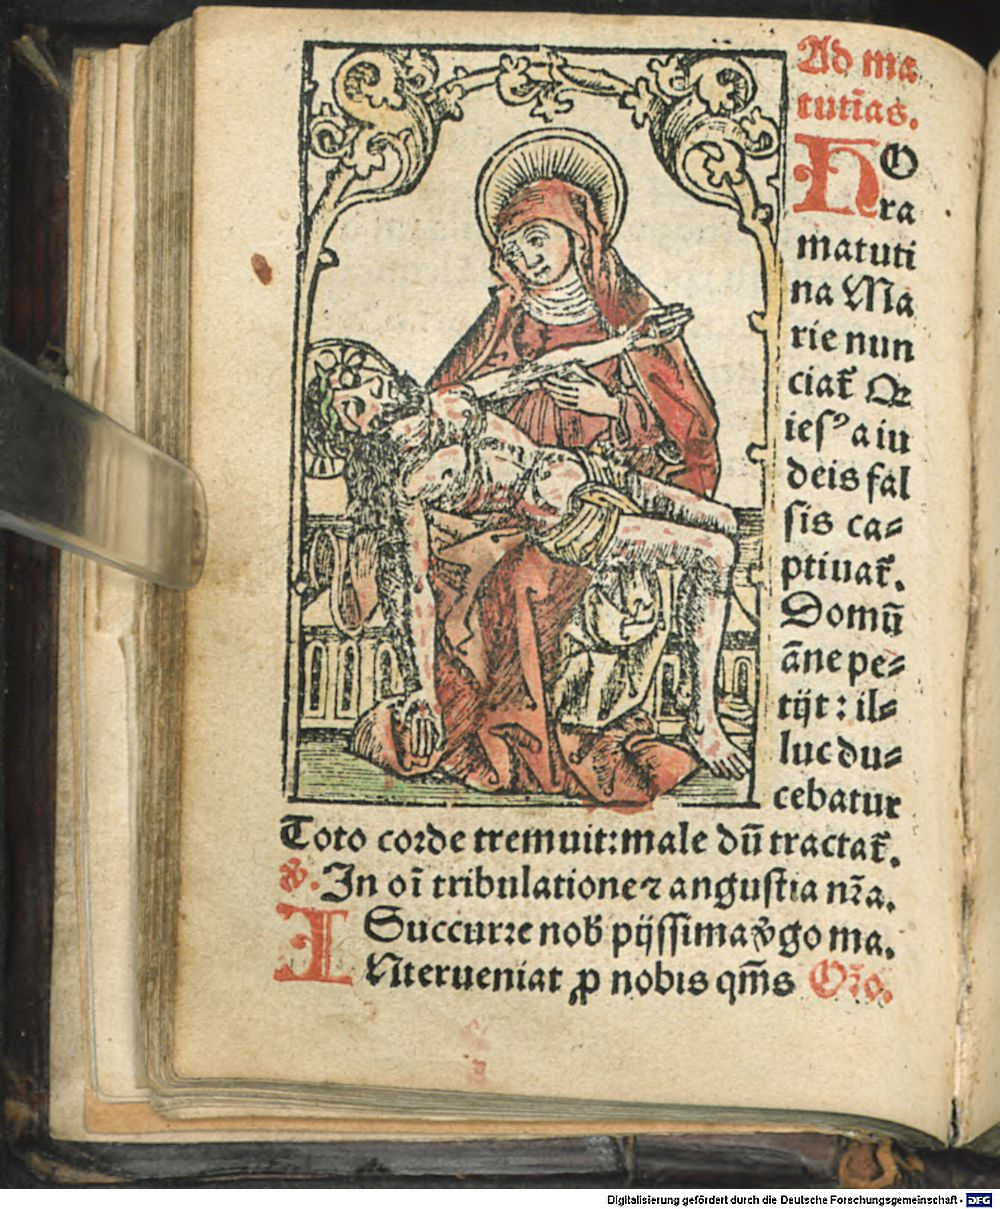 Ad ma
tutīas.
HO
ra
matuti
na Ma
rie nun
ciat̄ Qꝛ
ieſꝰ a iu
deis fal
ſis ca⸗
ptiuat̄.
Domū
āne pe⸗
tijt : il⸗
luc du⸗
cebatur
Toto coꝛde tremuit: male dn̄ tractat̄.
℣. In oī tribulatione ⁊ anguſtia nꝛ̄a.
Succurre nob̄ pijſſima ꝟgo ma.
INterueniat ꝓ nobis qm̄s Oꝛ̄o.
Digitalisierung gefördert durch die Deutsche Forschungsgemeinschaft - DFG